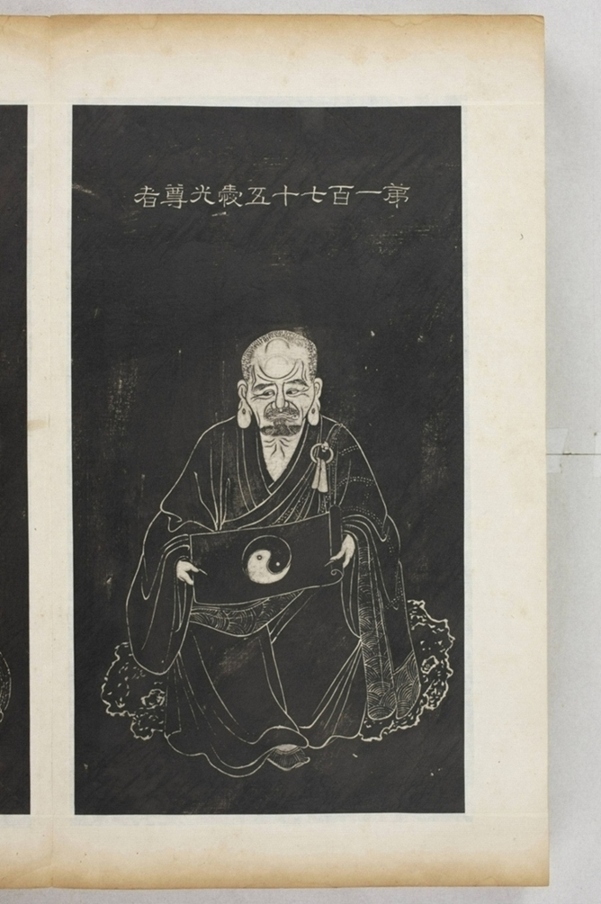 第一百七十五愛光尊者